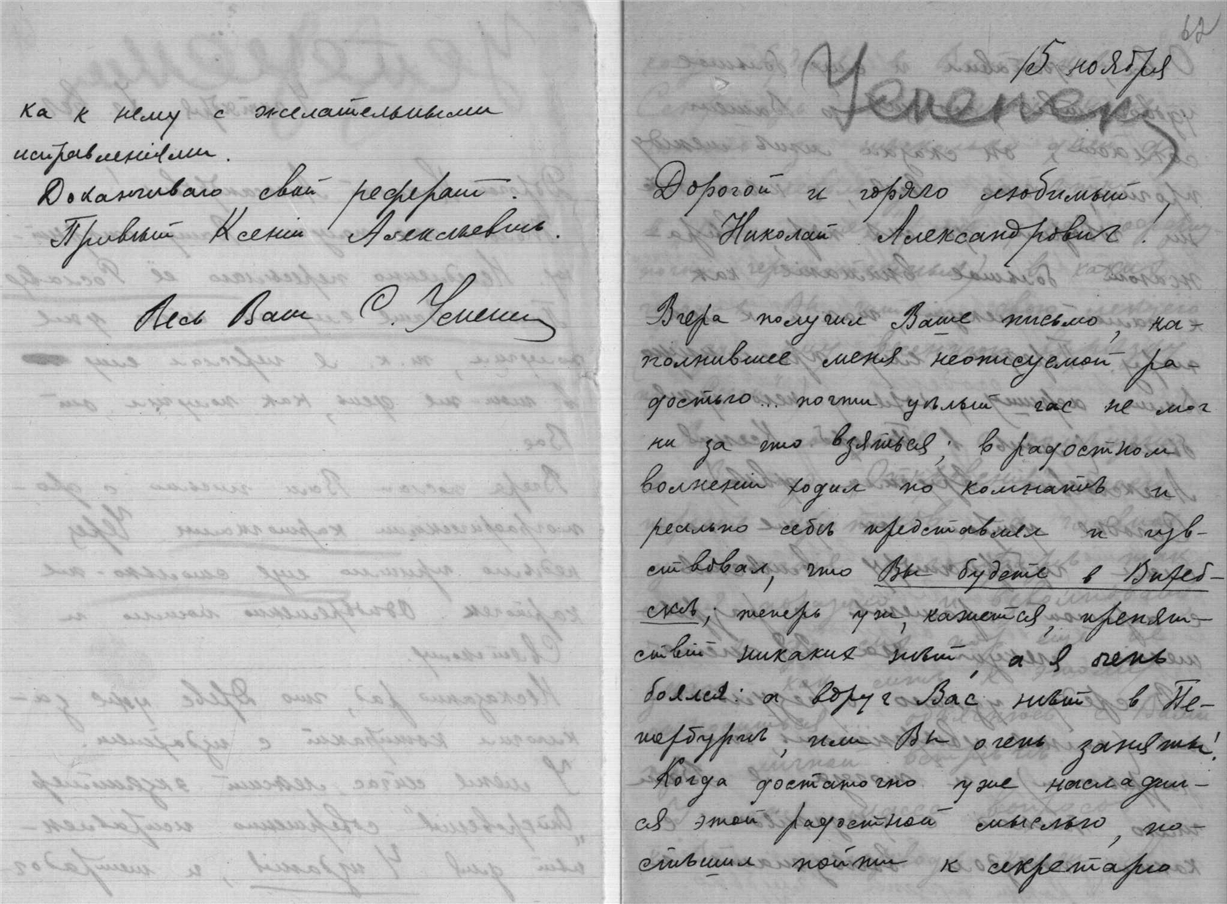 ка к нему с желательными
исправленіями.
Доканчиваю свой реферат.
Привѣт Ксеніи
Весь Ваш С. Успенскій
62
15 ноября
Успенск
Дорогой и горячо любимый,
Николай Александрович!
Вчера получил Ваше письмо, на-
полнившее меня неописуемой ра-
достью... почти цѣлый час не мог
ни за что взяться; в радостном
волненіи ходил по комнатѣ и
реально себѣ представлял и чув-
ствовал, что Вы будете в Витеб-
скѣ; теперь уж, кажется, препят-
ствій никаких нѣт, а я очень
боялся: а вдруг Вас нѣт в Пе-
тербургѣ, или Вы очень заняты!
Когда достаточно уже насладил-
ся этой радостной мыслью, по-
спѣшил пойти к секретарю